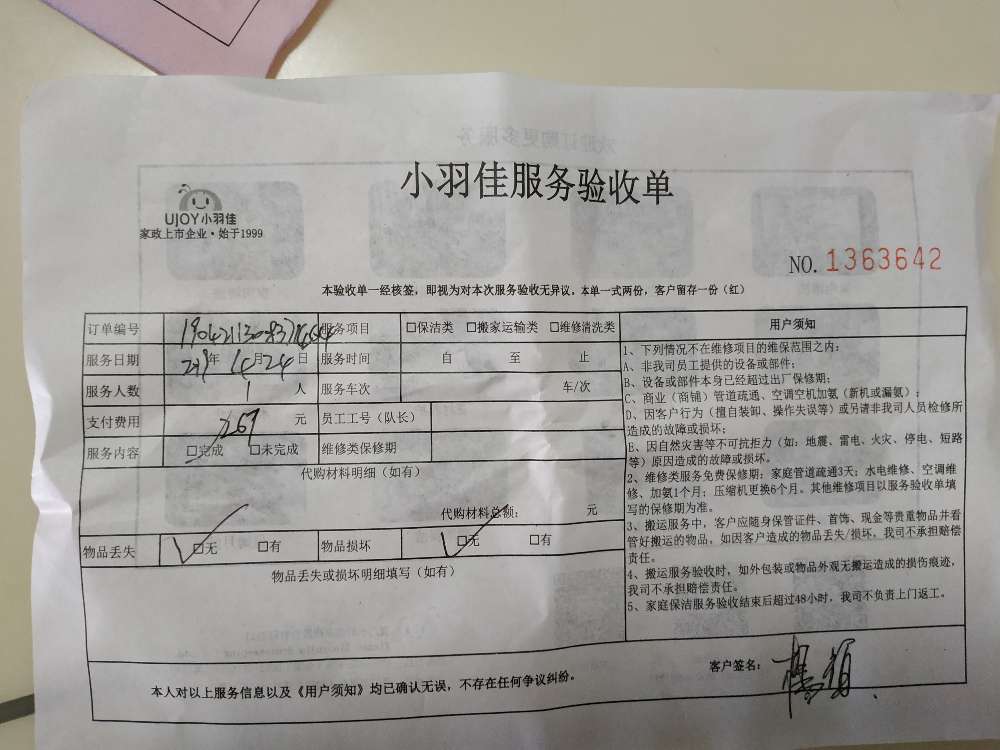 小羽佳服务验收单
UJOY小羽佳
家政上市企业·始于1999
NO. 1363642
本验收单一经核签，即视为对本次服务验收无异议。本单一式两份，客户留存一份（红）
订单编号
服务项目 □保洁类 □搬家运输类 □维修清洗类
服务日期 年 月 24 日 服务时间 自 至 止
服务人数 1 人 服务车次 车/次
支付费用 267 元 员工工号（队长）
服务内容 □完成 □未完成 维修类保修期
代购材料明细（如有）
代购材料总额： 元
物品丢失 □无 □有 物品损坏 □无 □有
物品丢失或损坏明细填写（如有）
用户须知
1、下列情况不在维修项目的维保范围之内：
A、非我司员工提供的设备或部件；
B、设备或部件本身已经超过出厂保修期；
C、商业（商铺）管道疏通、空调空机加氨（新机或漏氨）；
D、因客户行为（擅自装卸、操作失误等）或另请非我司人员检修所
造成的故障或损坏；
E、因自然灾害等不可抗拒力（如：地震、雷电、火灾、停电、短路
等）原因造成的故障或损坏。
2、维修类服务免费保修期：家庭管道疏通3天；水电维修、空调维
修、加氨1个月；压缩机更换6个月。其他维修项目以服务验收单填
写的保修期为准。
3、搬运服务中，客户应随身保管证件、首饰、现金等贵重物品并看
管好搬运的物品，如因客户造成的物品丢失/损坏，我司不承担赔偿
责任。
4、搬运服务验收时，如外包装或物品外观无搬运造成的损伤痕迹，
我司不承担赔偿责任。
5、家庭保洁服务验收结束后超过48小时，我司不负责上门返工。
本人对以上服务信息以及《用户须知》均已确认无误，不存在任何争议纠纷。
客户签名：